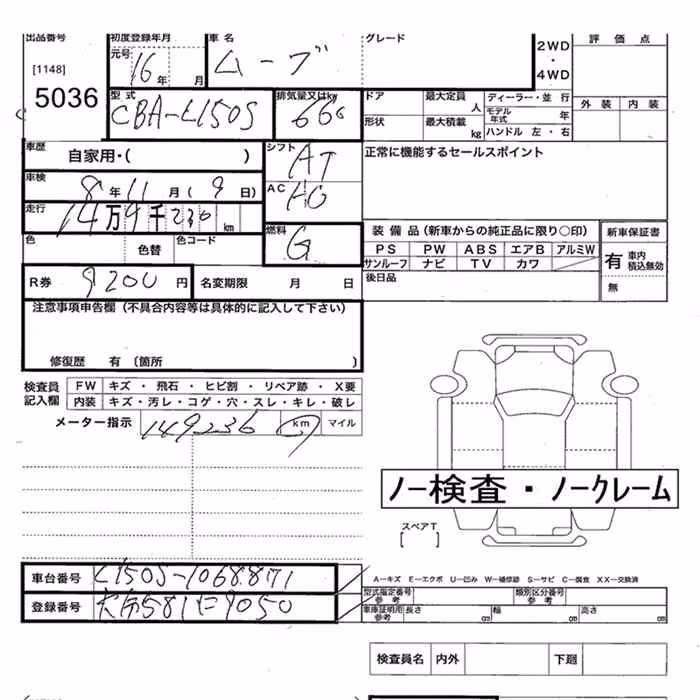 出品番号 初度登録年月 車名 グレード
[1148] 元号 16年 月 ムーブ 2WD・4WD 評価点
5036 外装 内装
型式 CBA-L150S 排気量又はkw 660 ドア 最大定員 人 ディーラー・並行
形状 最大積載 kg モデル年式 年
ハンドル 左・右
車歴 自家用・( ) シフト AT 正常に機能するセールスポイント
車検 8年11月(9日) AC
走行 14万9千236km
燃料 G 装備品(新車からの純正品に限り○印) 新車保証書
色 色替 色コード PS PW ABS エアB アルミW 有 車内積込無効
サンルーフ ナビ TV カワ
R券 9200円 名変期限 月 日 後日品 無
注意事項申告欄(不具合内容等は具体的に記入して下さい)
修復歴 有 〔箇所 〕
検査員記入欄 FW キズ・飛石・ヒビ割・リペア跡・X要
内装 キズ・汚レ・コゲ・穴・スレ・キレ・破レ
メーター指示 149236 km マイル
ノー検査・ノークレーム
スペアT
[ ]
車台番号 L150S-1068871
登録番号 581 9050
A－キズ E－エクボ U－凹み W－補修跡 S－サビ C－腐食 XX－交換済
型式指定番号 参考 類別区分番号 参考
車庫証明用 参考 長さ cm 幅 cm 高さ cm
検査員名 内外 下廻